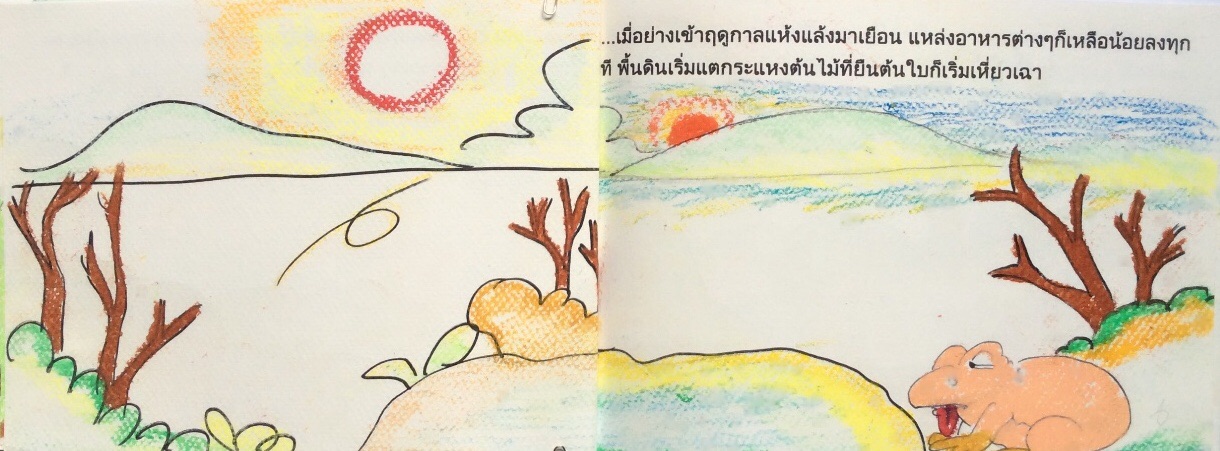 ...เมื่อย่างเข้าฤดูกาลแห้งแล้งมาเยือน แหล่งอาหารต่างๆก็เหลือน้อยลงทุก
ที พื้นดินเริ่มแตกระแหงต้นไม้ที่ยืนต้นใบก็เริ่มเหี่ยวเฉา